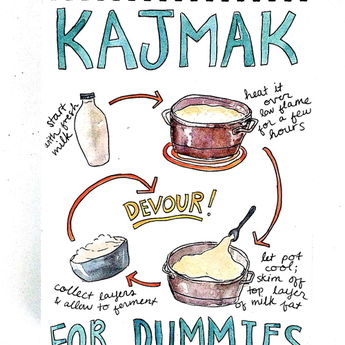 KAJMAK
start
with fresh
milk
heat it
over
low flame
for a few
hours
DEVOUR!
let pot
cool;
skim off
top layer
of milk fat
collect layers
& allow to ferment
FOR DUMMIES